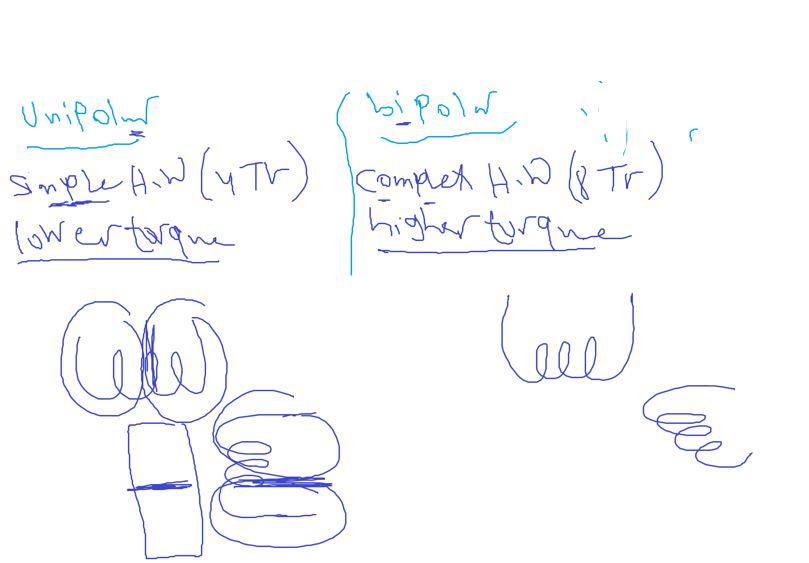 Unipolar
simple H.W (4 Tr)
lower torque
bipolar
complex H.W (8 Tr)
higher torque